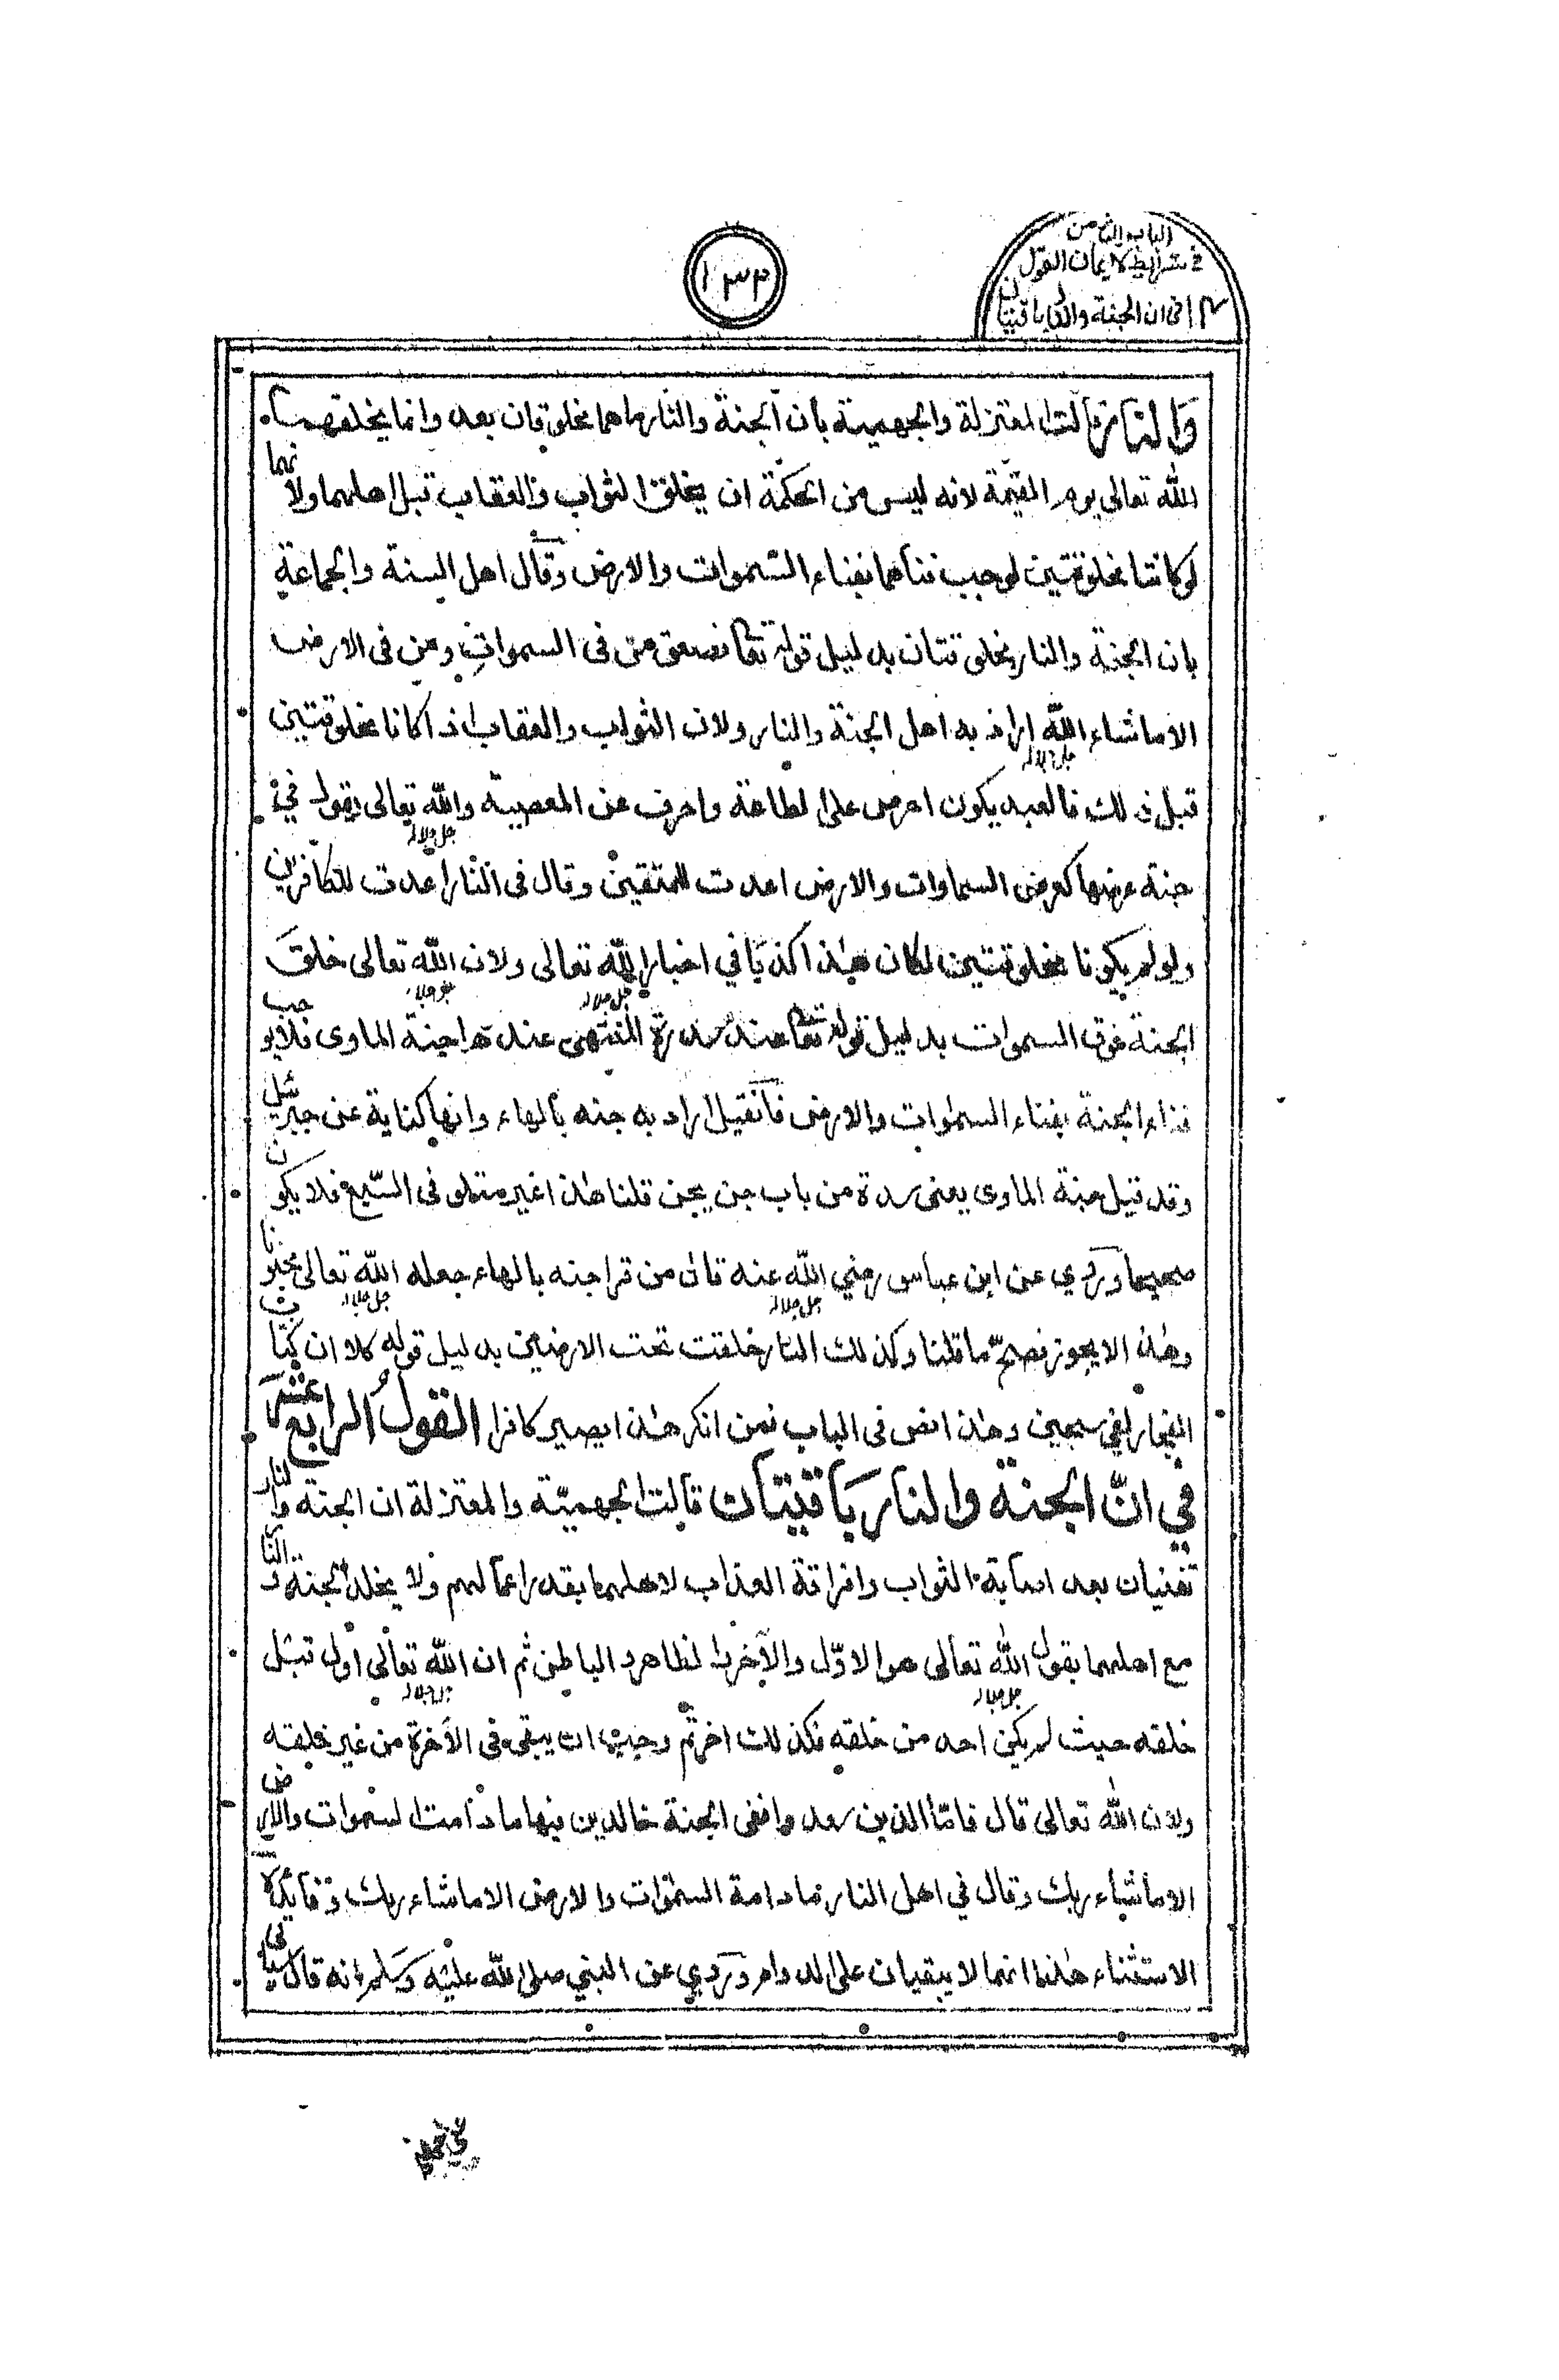 الباب الثامن
في شرائط الايمان القول
١٤ في ان الجنة والنار باقيتان
١٣٣
وَالنار قالت المعتزلة والجهمية بان الجنة والنار ما هما مخلوقان بعد وانما يخلقهما
الله تعالى يوم القيمة لانه ليس من الحكمة ان يخلق الثواب والعقاب قبل اهلهما ولانهما
لو كانتا مخلوقتين لوجب فناهما بفناء السموات والارض وقال اهل السنة والجماعة
بان الجنة والنار مخلوقتان بدليل قوله تعا فصعق من فى السموات ومن فى الارض
الا ما شاء الله اراد به اهل الجنة والنار ولان الثواب والعقاب اذا كانا مخلوقتين
قبل ذلك فالعبد يكون احرص على الطاعة واحرف عن المعصية والله تعالى جل جلاله يقول في
جنة عرضها كعرض السماوات والارض اعدت للمتقين وقال فى النار اعدت للكافرين
ولو لم يكونا مخلوقتين لكان هٰذا كذبًا في اخبار الله تعالى ولان الله تعالى خلق
الجنة فوق السموات بدليل قوله تعا عند سدرة المنتهى عندها جنة الماوى فلا يوجب
فناء الجنة بفناء السموات والارض فان قيل اراد به جنه بالهاء وانها كناية عن جبرئيل
وقد قيل جنة الماوى يعنى سدة من باب جن يجن قلنا هٰذا غير متلو فى السبع فلا يكون
صحيحا وروي عن ابن عباس رضي الله عنه قال من قرا جنه بالهاء جعله الله تعالى مجنونا
وهٰذا لا يجوز فصحّ ما قلنا وكذلك النار خلقت تحت الارضين بدليل قوله كلا ان كتاب
الفجار لفي سجين وهٰذا نص فى الباب فمن انكر هٰذا يصير كافرا القول الرابع عشر
في انّ الجنة والنار باقيتان قالت الجهميّة والمعتزلة ان الجنة والنار
تفنيان بعد اصابة الثواب واذاقة العذاب لاهلهما بقدر اعمالهم ولا يخلد الجنة والنار
مع اهلهما بقول الله تعالى هو الاوّل والآخر والظاهر والباطن ثم ان الله تعالى اول قبل
خلقه حيث لم يكن احد من خلقه فكذلك اخر ثم وجب ان يبقى فى الآخرة من غير خلقه
ولان الله تعالى قال فامّا الذين سعدوا ففى الجنة خالدين فيها ما دامت السموات والارض
الا ما شاء ربك وقال في اهل النار ما دامة السمٰوات والارض الا ما شاء ربك وفائدة
الاستثناء هٰذا انهما لا يبقيان على الدوام وروي عن النبي صلى الله عليه وسلم انه قال سياتى